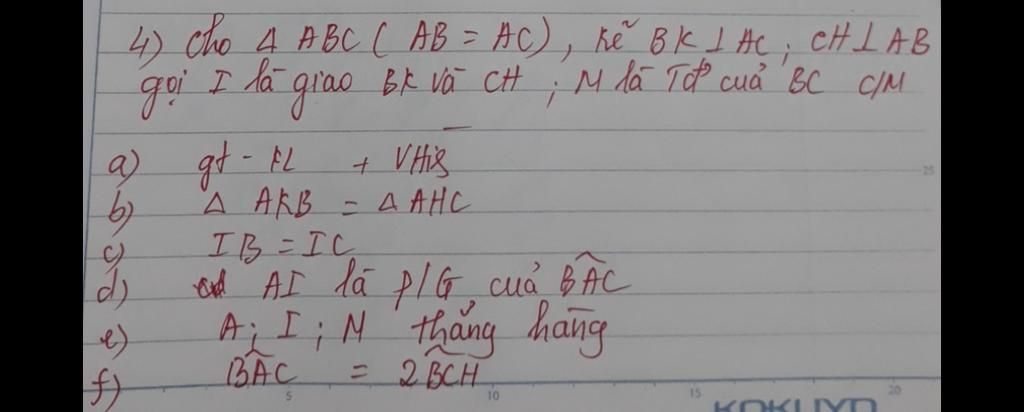 4) Cho Δ ABC ( AB = AC), kẽ BK ⊥ AC; CH ⊥ AB
gọi I là giao BK và CH ; M là Tđ' của BC C/M
a) gt - KL + Vhìg
b) Δ AKB = Δ AHC
c) IB = IC
d) AI là p/G của BAC
e) A; I; M thẳng hàng
f) BAC = 2BCH
25
5 10 15 20
KOKUYO